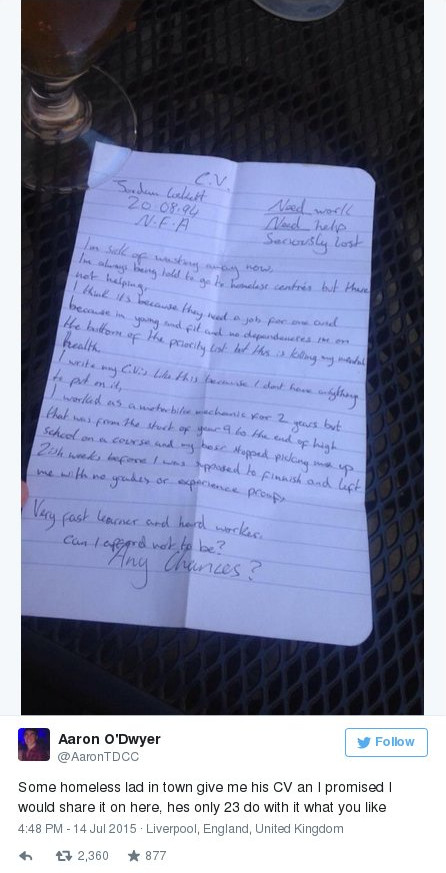 C.V.
Jordan
20.08.94
N.F.A
Need work
Need help
Seriously Lost
I'm sick of wasting away now.
I'm always being told to go to homeless centres but there
not helping.
I think its because they need a job for one and
because im young and fit and no dependencies im on
the bottom of the priority list but this is killing my mental
health.
I write my C.V.'s like this because I dont have anything
to put on it,
I worked as a motorbike mechanic for 2 years but
that was from the start of year 9 to the end of high
school on a course and my boss stopped picking me up
2 weeks before I was supposed to finish and left
me with no grades or experience proof,
Very fast learner and hard worker.
Can I afford not to be?
Any Chances?
Aaron O'Dwyer
@AaronTDCC
Follow
Some homeless lad in town give me his CV an I promised I
would share it on here, hes only 23 do with it what you like
4:48 PM - 14 Jul 2015 · Liverpool, England, United Kingdom
2,360
877